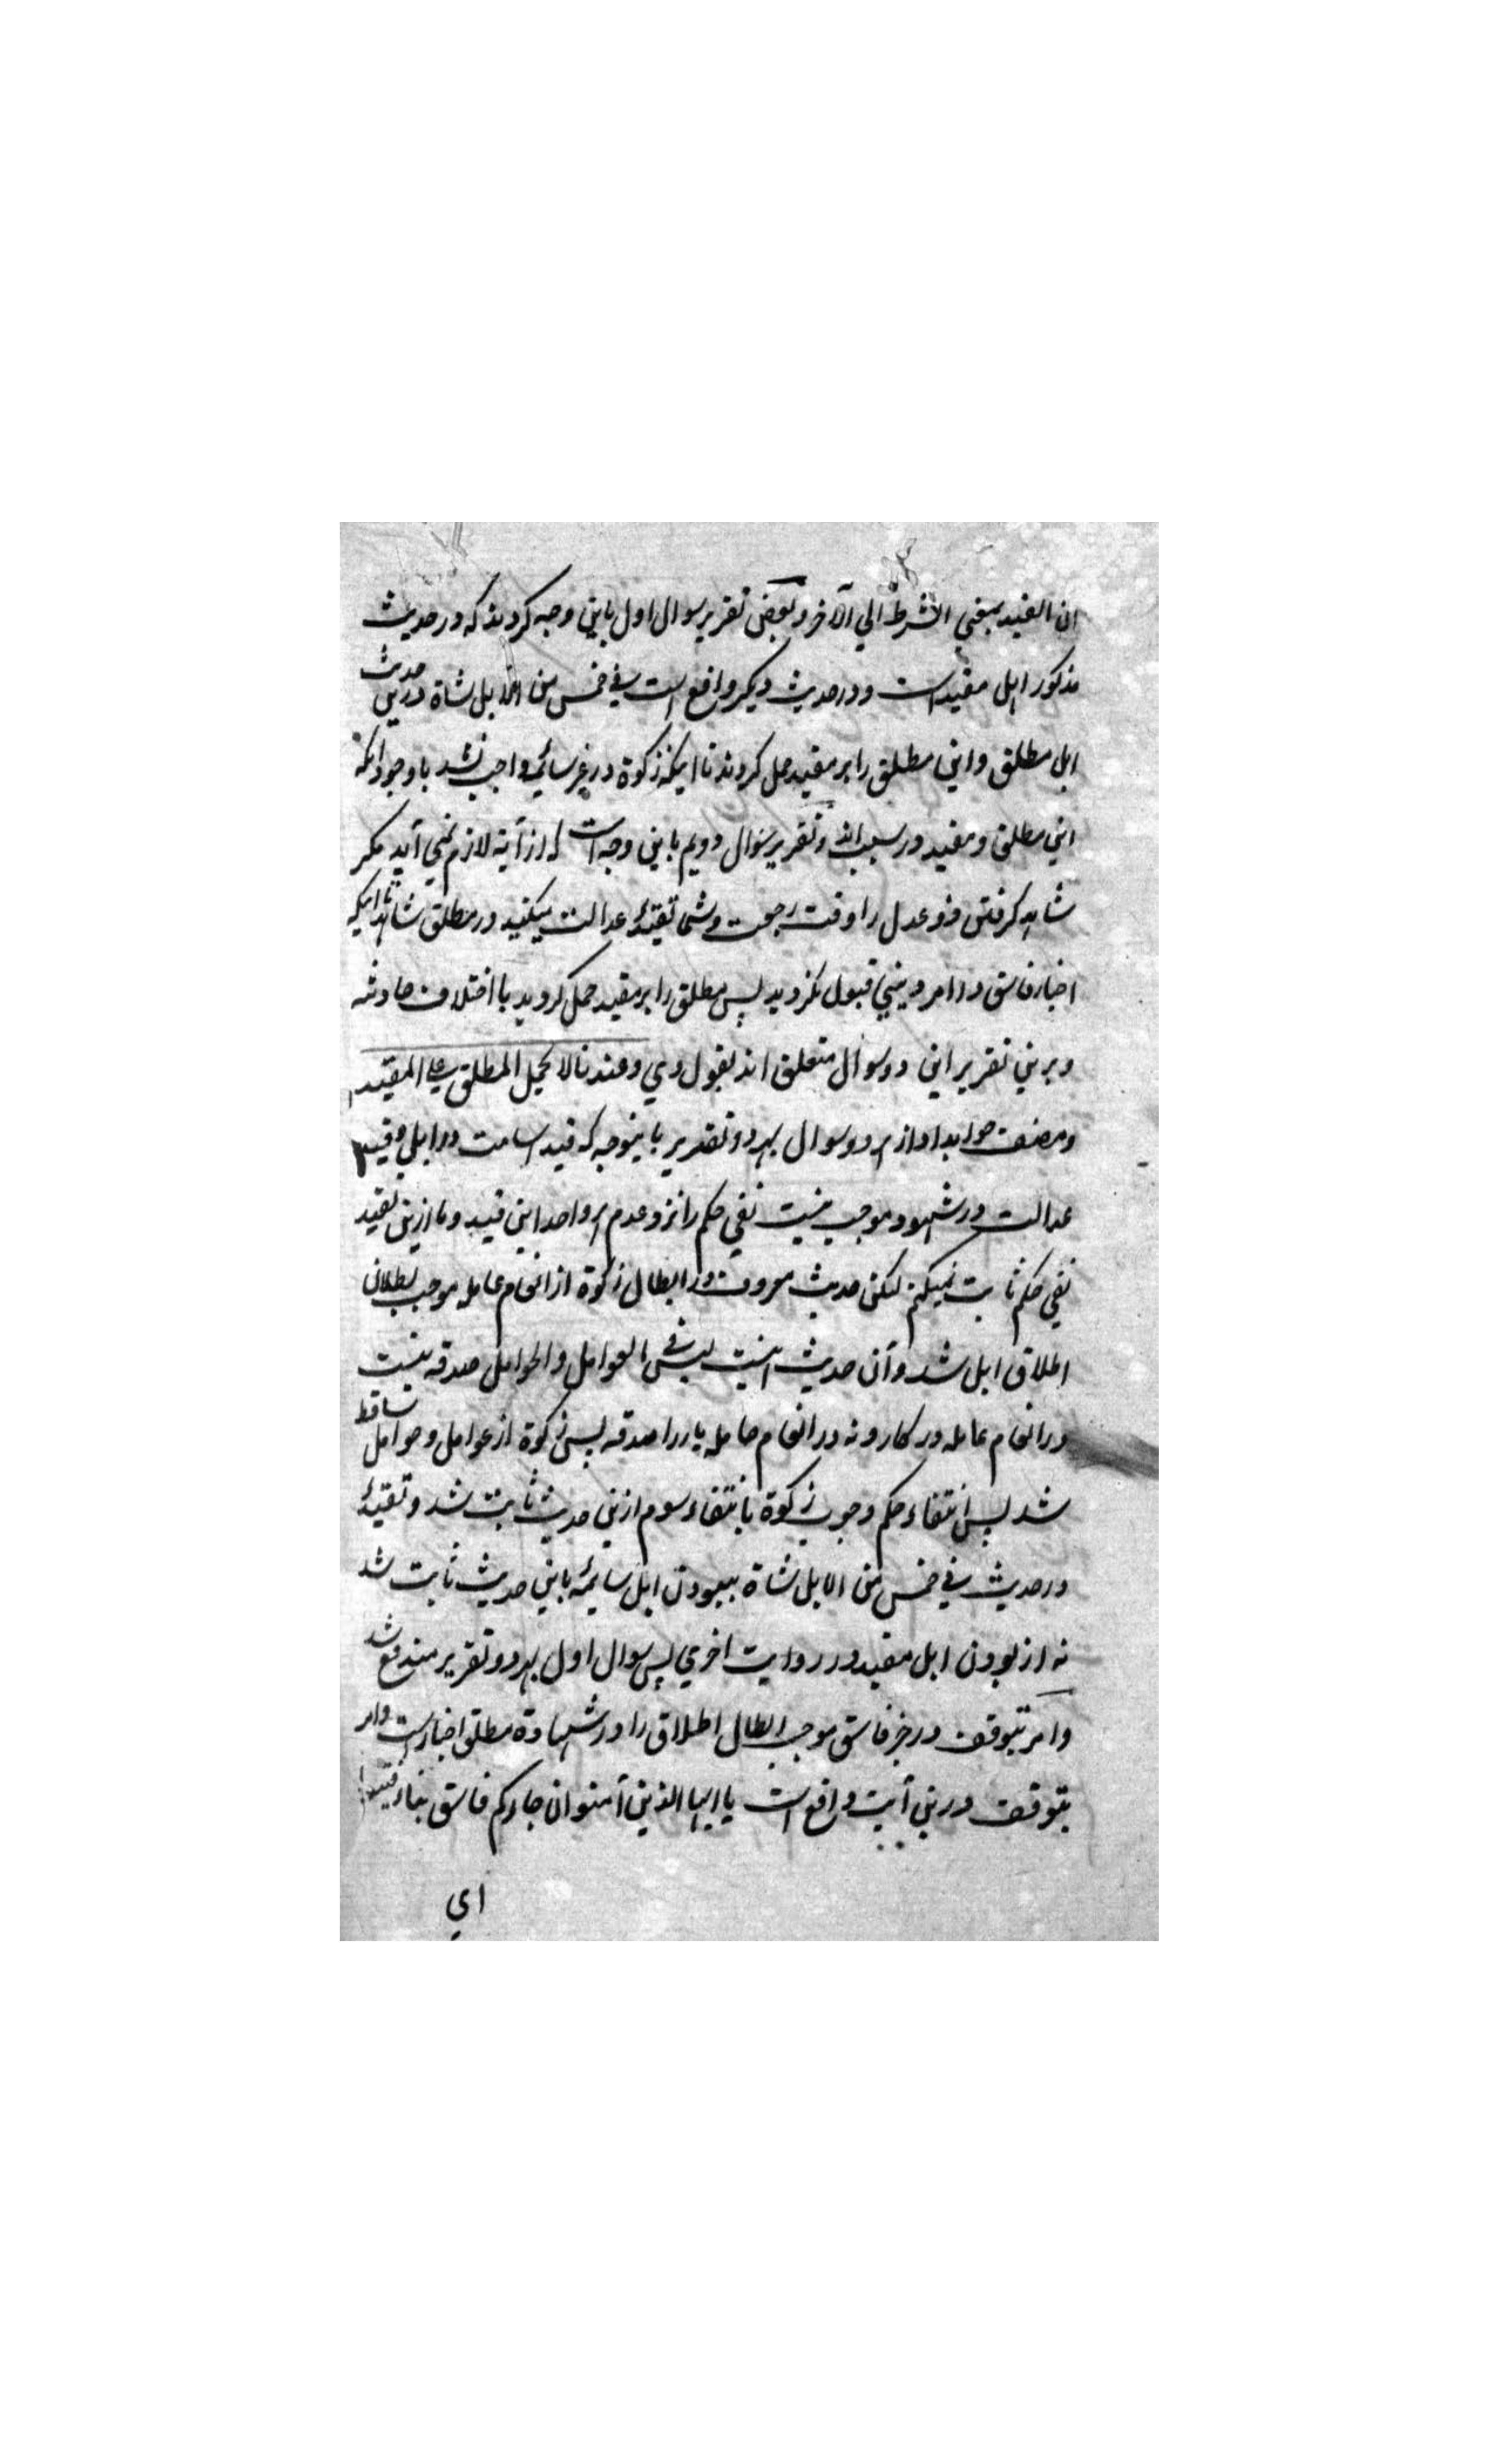 ان القید بمعني الشرط الي الآخر و بعض تقریر سوال اول باین وجه کردند که در حدیث
مذکور ابل مقید است و در حدیث دیکر واقع است في خمس من الابل شاة درین حدیث
ابل مطلق و این مطلق را بر مقید حمل کردند تا اینکه زکوة در غیر سائمه واجب نشد با وجود انکه
این مطلق و مقید در سبب اند و تقریر سؤال دویم باین وجه است که از آیة لازم نمي آید مکر
شاهد کرفتن ذو عدل را وقت رجعت و شما تقیید عدالت میکنید در مطلق شاهد تا اینکه
اخبار فاسق در امر دیني قبول نکردید پس مطلق را بر مقید حمل کردید با اختلاف حادثه
و برین تقریر این دو سوال متعلق اند بقول وي و عندنا لا یحمل المطلق علي المقید
و مصنف جواب داد از هر دو سوال بهر دو تقریر باینوجه که قید اسامت در ابل و قید
عدالت در شهود موجب نیست نفي حکم را نزد عدم هر واحد این قید و ما ازین تقید
نفي حکم ثابت نمیکنم لکن حدیث معروف در ابطال زکوة از انعام عامله موجب بطلان
اطلاق ابل شد و آن حدیث اینست لیس في العوامل و الحوامل صدقه نیست
در انعام عامله در کار و نه در انعام حامله بار را صدقه پس زکوة از عوامل و حوامل ساقط
شد پس انتفاء حکم وجوب زکوة بانتفاء سوم ازین حدیث ثابت شد و تقیید
در حدیث في خمس من الابل شاة ببودن ابل سایمه باین حدیث ثابت شد
نه از بودن ابل مقید در روایت اخري پس سوال اول بهر دو تقریر مندفع شد
و امر بتوقف در خبر فاسق موجب ابطال اطلاق را در شهادة مطلق اخبار است و امر
بتوقف درین آیت واقع است یا ایها الذین آمنوا ان جاءکم فاسق بنباء فتبینوا
اي